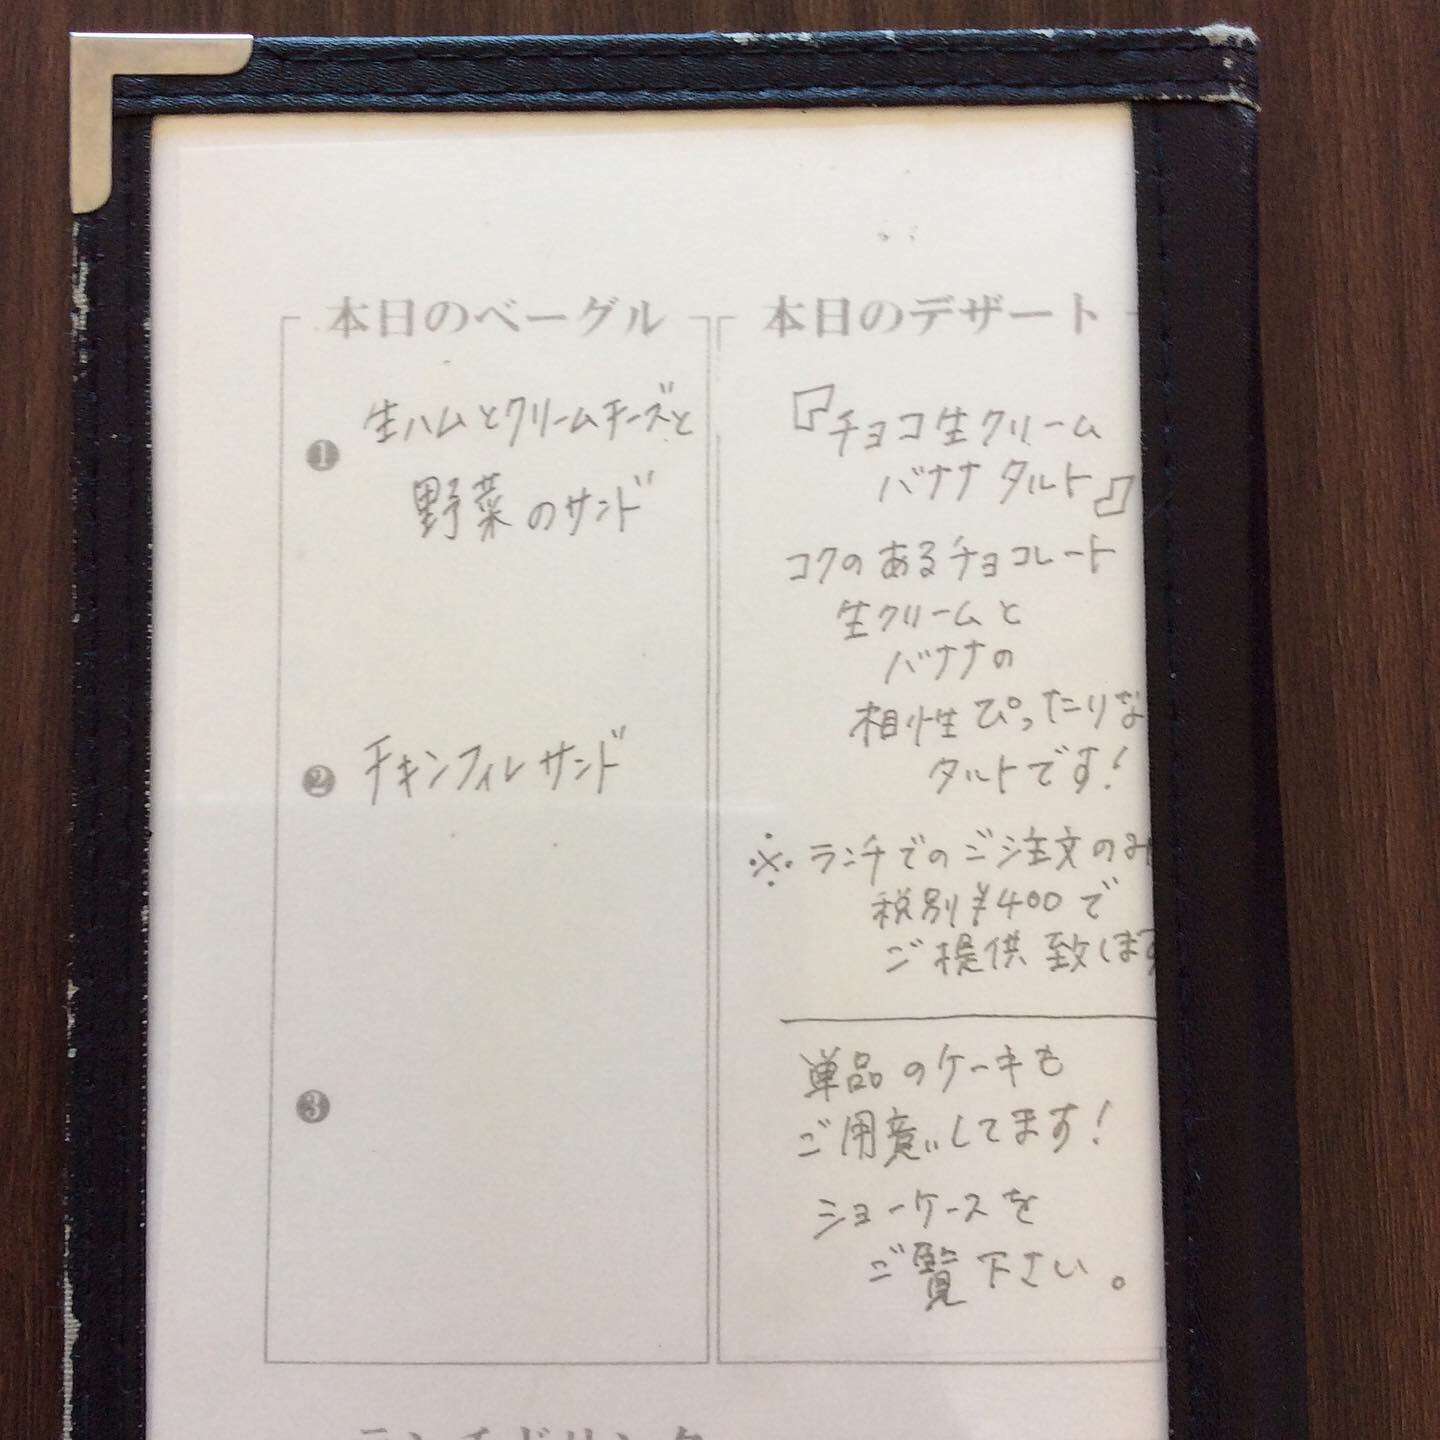 本日のベーグル
❶ 生ハムとクリームチーズと
野菜のサンド
❷ チキンフィレサンド
❸
本日のデザート
『チョコ生クリーム
バナナタルト』
コクのあるチョコレート
生クリームと
バナナの
相性ぴったりな
タルトです!
※ランチでのご注文のみ
税別¥400で
ご提供致します
単品のケーキも
ご用意いしてます!
ショーケースを
ご覧下さい。
ランチドリンク